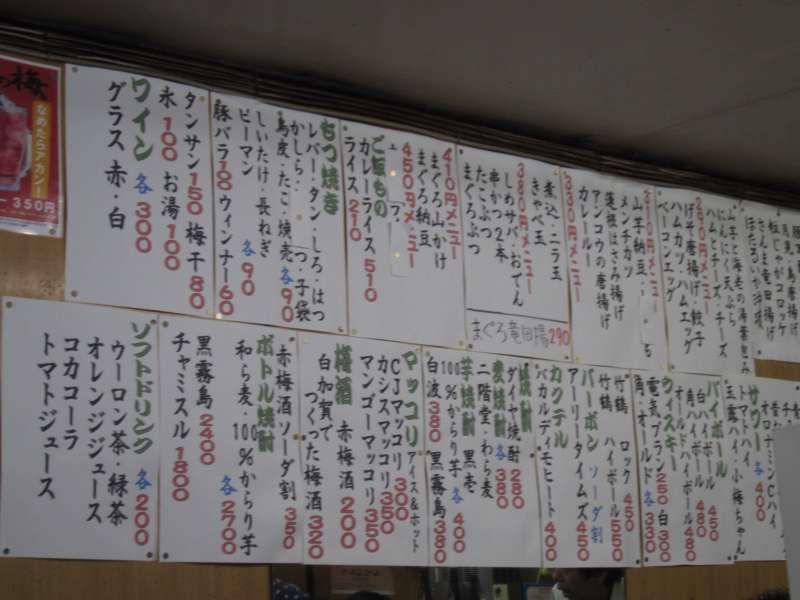 豚
鳥皮
馬刺
粒じゃがコロッケ
さんま竜田揚げ
ほたるいか沖漬
山芋と海老の湯葉包み
にんにく天ぷら
ハムとチーズ・チーズ
260円メニュー
げそ唐揚げ・餃子
ハムカツ・ハムエッグ
ベーコンエッグ
310円メニュー
山芋納豆・
メンチカツ
蓮根はさみ揚げ
アンコウの唐揚げ
カレールー
330円メニュー
煮込・ニラ玉
きゃべ玉
380円メニュー
しめサバ・おでん
串かつ2本
たこぶつ
まぐろぶつ
まぐろ竜田揚 290
410円メニュー
まぐろ山かけ
まぐろ納豆
450円メニュー
ご飯もの
カレーライス 510
ライス 210
もつ焼き
レバー・タン・しろ・はつ
かしら・
つ・子袋
鳥皮・たこ・焼売 各90
しいたけ・長ねぎ
ピーマン 各90
豚バラ100 ウィンナー60
タンサン150 梅干80
氷100 お湯100
ワイン 各300
グラス 赤・白
梅
なめたらアカン!
350円
サワー 各400
オロナミンCハイ
トマトハイ
玉露ハイ・小梅ちゃん
ハイボール
白ハイボール 450
角ハイボール 480
オールドハイボール 480
ウィスキー
電気ブラン250 白300
角・オールド 各330
竹鶴 ロック 450
竹鶴 ハイボール 550
バーボン ソーダ割
アーリータイムズ 450
カクテル
バカルディモヒート 400
焼酎
ダイヤ焼酎 280
麦焼酎 各380
二階堂・わら麦
芋焼酎 黒壱
100%からり芋 各400
白波380 黒霧島380
マッコリ アイス&ホット
CJマッコリ 300
カシスマッコリ 350
マンゴーマッコリ 350
梅酒 赤梅酒 200
白加賀で
つくった梅酒 320
赤梅酒ソーダ割 350
ボトル焼酎
和ら麦・100%からり芋
各2700
黒霧島 2400
チャミスル 1800
ソフトドリンク 各200
ウーロン茶・緑茶
オレンジジュース
コカコーラ
トマトジュース